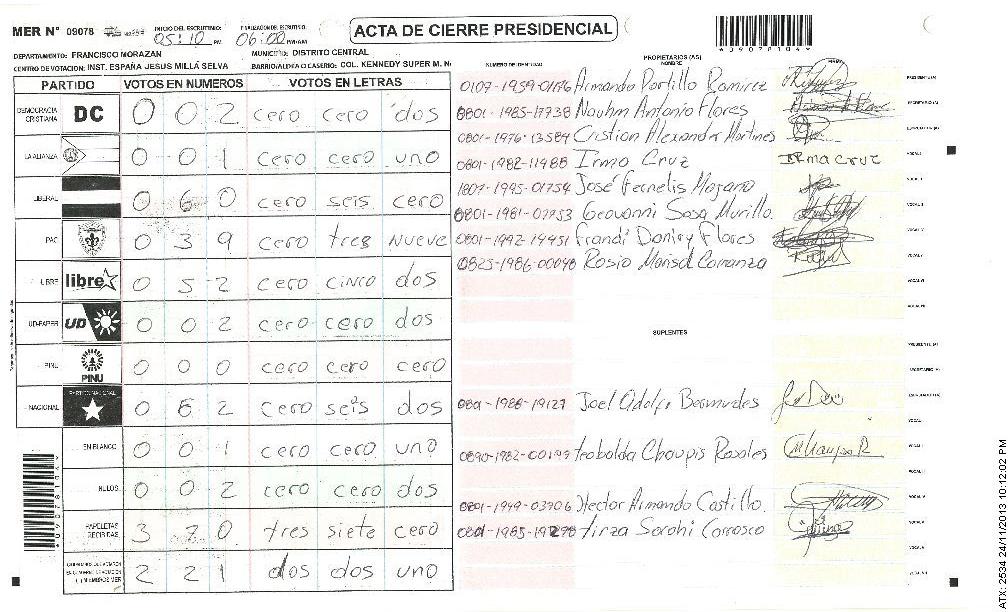 MER N° 09078 INICIO DEL ESCRUTINIO: 05:10 PM FINALIZACION DEL ESCRUTINIO: 06:00 PM/AM
ACTA DE CIERRE PRESIDENCIAL
*09078104*
DEPARTAMENTO: FRANCISCO MORAZAN MUNICIPIO: DISTRITO CENTRAL
CENTRO DE VOTACION: INST. ESPAÑA JESUS MILLA SELVA BARRIO/ALDEA O CASERIO: COL. KENNEDY SUPER M. N
PARTIDO VOTOS EN NUMEROS VOTOS EN LETRAS
DEMOCRACIA CRISTIANA DC 0 0 2 cero cero dos
LA ALIANZA 0 0 1 cero cero uno
LIBERAL 0 6 0 cero seis cero
PAC 0 3 9 cero tres nueve
LIBRE libre 0 5 2 cero cinco dos
UD-FAPER UD 0 0 2 cero cero dos
PINU PINU 0 0 0 cero cero cero
NACIONAL PARTIDO NACIONAL 0 6 2 cero seis dos
EN BLANCO 0 0 1 cero cero uno
NULOS 0 0 2 cero cero dos
PAPELETAS RECIBIDAS 3 7 0 tres siete cero
2 2 1 dos dos uno
NUMERO DE IDENTIDAD PROPIETARIOS (AS) NOMBRE FIRMA
0107-1959-01196 Armando Portillo Ramirez PRESIDENTE (A)
0801-1985-17738 Nouhm Antonio Flores SECRETARIO (A)
0801-1976-13584 Cristian Alexander Martines ESCRUTADOR (A)
0801-1982-11988 Irma Cruz IRma cruz VOCAL I
1807-1995-01754 José Fernelis Mozano
0801-1981-07753 Geovanni Sosa Murillo
0801-1992-19451 Frandi Doniry Flores
0825-1986-00048 Rosio Marisol Carranza
SUPLENTES
PRESIDENTE (A)
SECRETARIO (A)
0801-1988-19127 Joel Adolfo Bermudes ESCRUTADOR (A)
0890-1982-00199 Teobalda Chaupis Rosales
0801-1949-03906 Hector Armando Castillo
0801-1985-19298 Tirza Sarahi Carrasco
*09078104*
ATX: 2534 24/11/2013 10:12:02 PM